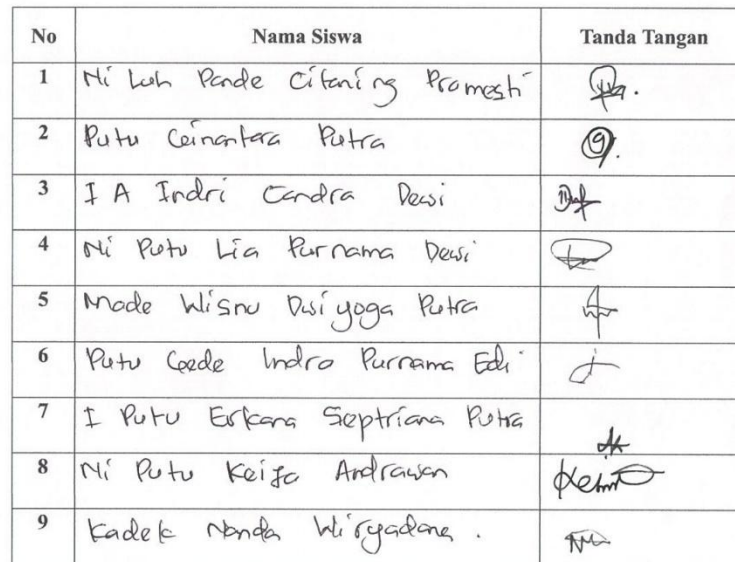 No Nama Siswa Tanda Tangan
1 Ni Luh Pande Citaning Pramesti
2 Putu Geinantara Putra
3 I A Indri Candra Dewi
4 Ni Putu Lia Purnama Dewi
5 Made Wisnu Dwi yoga Putra
6 Putu Gede Indra Purnama Edi
7 I Putu Erkana Septriana Putra
8 Ni Putu Keiza Andrawan
9 Kadek Nanda Wiryadana .